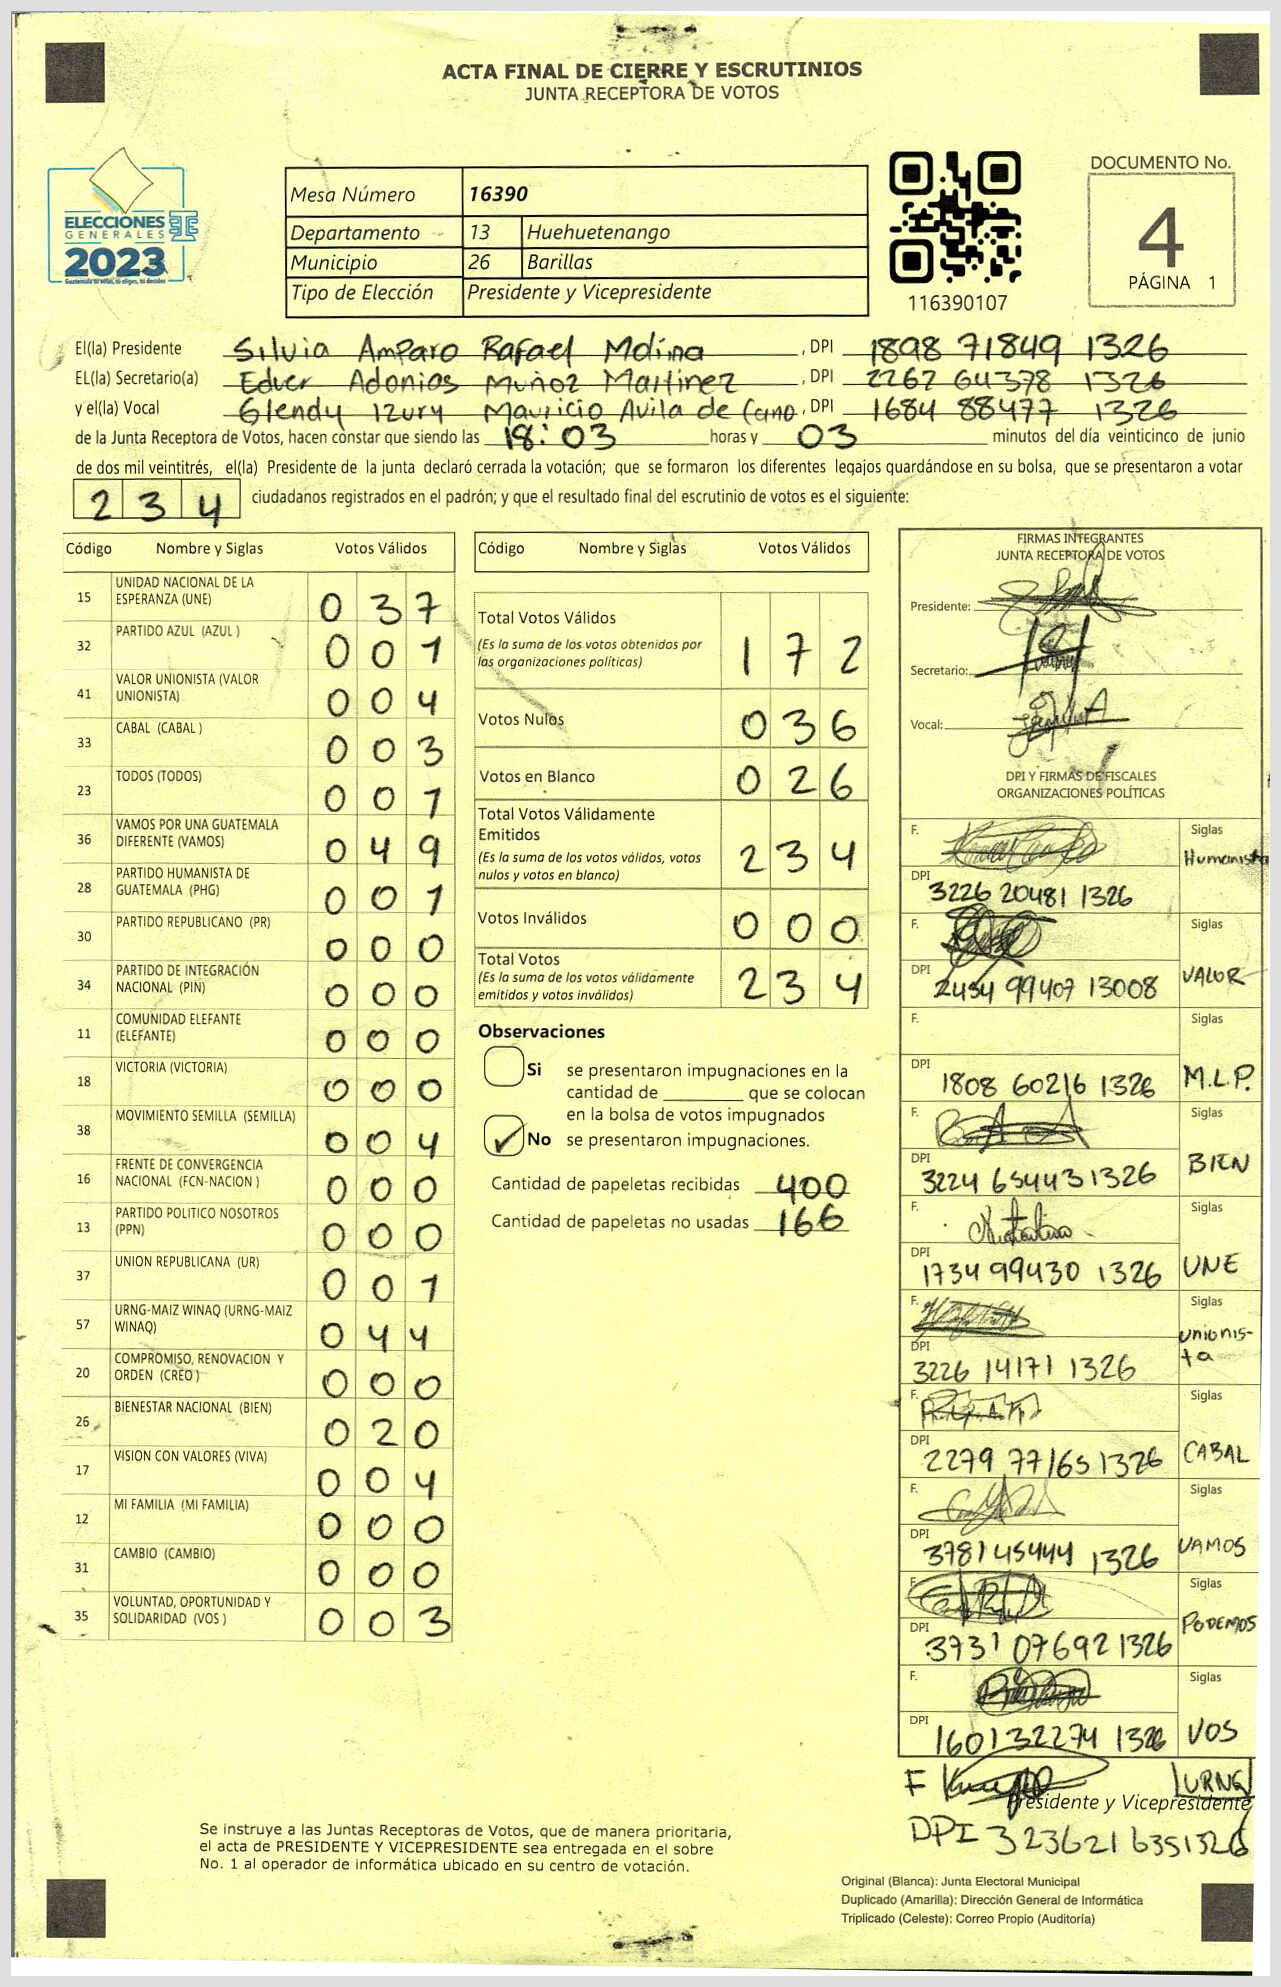 ACTA FINAL DE CIERRE Y ESCRUTINIOS
JUNTA RECEPTORA DE VOTOS
ELECCIONES
GENERALES
2023
Mesa Número 16390
Departamento 13 Huehuetenango
Municipio 26 Barillas
Tipo de Elección Presidente y Vicepresidente
116390107
DOCUMENTO No.
4
PÁGINA 1
El(la) Presidente Silvia Amparo Rafael Molina , DPI 1898 71849 1326
EL(la) Secretario(a) Edver Adonias Muñoz Martinez , DPI 2262 64378 1326
y el(la) Vocal Glendy Izury Mauricio Avila de Cano , DPI 1684 88477 1326
de la Junta Receptora de Votos, hacen constar que siendo las 18:03 horas y 03 minutos del día veinticinco de junio
de dos mil veintitrés, el(la) Presidente de la junta declaró cerrada la votación; que se formaron los diferentes legajos quardándose en su bolsa, que se presentaron a votar
234 ciudadanos registrados en el padrón; y que el resultado final del escrutinio de votos es el siguiente:
Código Nombre y Siglas Votos Válidos
15 UNIDAD NACIONAL DE LA ESPERANZA (UNE) 037
32 PARTIDO AZUL (AZUL ) 001
41 VALOR UNIONISTA (VALOR UNIONISTA) 004
33 CABAL (CABAL ) 003
23 TODOS (TODOS) 001
36 VAMOS POR UNA GUATEMALA DIFERENTE (VAMOS) 049
28 PARTIDO HUMANISTA DE GUATEMALA (PHG) 001
30 PARTIDO REPUBLICANO (PR) 000
34 PARTIDO DE INTEGRACIÓN NACIONAL (PIN) 000
11 COMUNIDAD ELEFANTE (ELEFANTE) 000
18 VICTORIA (VICTORIA) 000
38 MOVIMIENTO SEMILLA (SEMILLA) 004
16 FRENTE DE CONVERGENCIA NACIONAL (FCN-NACION ) 000
13 PARTIDO POLITICO NOSOTROS (PPN) 000
37 UNION REPUBLICANA (UR) 001
57 URNG-MAIZ WINAQ (URNG-MAIZ WINAQ) 044
20 COMPROMISO, RENOVACION Y ORDEN (CREO ) 000
26 BIENESTAR NACIONAL (BIEN) 020
17 VISION CON VALORES (VIVA) 004
12 MI FAMILIA (MI FAMILIA) 000
31 CAMBIO (CAMBIO) 000
35 VOLUNTAD, OPORTUNIDAD Y SOLIDARIDAD (VOS ) 003
Código Nombre y Siglas Votos Válidos
Total Votos Válidos 172
(Es la suma de los votos obtenidos por
las organizaciones políticas)
Votos Nulos 036
Votos en Blanco 026
Total Votos Válidamente
Emitidos 234
(Es la suma de los votos válidos, votos
nulos y votos en blanco)
Votos Inválidos 000
Total Votos 234
(Es la suma de los votos válidamente
emitidos y votos inválidos)
Observaciones
Si se presentaron impugnaciones en la
cantidad de ________ que se colocan
en la bolsa de votos impugnados
No se presentaron impugnaciones.
Cantidad de papeletas recibidas 400
Cantidad de papeletas no usadas 166
FIRMAS INTEGRANTES
JUNTA RECEPTORA DE VOTOS
Presidente:
Secretario:
Vocal:
DPI Y FIRMAS DE FISCALES
ORGANIZACIONES POLÍTICAS
F. Siglas Humanista
DPI 3226 20481 1326
F. Siglas VALOR
DPI 2454 99407 13008
F. Siglas M.L.P.
DPI 1808 60216 1326
F. Siglas BIEN
DPI 3224 65443 1326
F. Siglas UNE
DPI 1734 99430 1326
F. Siglas unionis-
ta
DPI 3226 14171 1326
F. Siglas CABAL
DPI 2279 77165 1326
F. Siglas VAMOS
DPI 3781 45444 1326
F. Siglas PODEMOS
DPI 3731 07692 1326
F. Siglas VOS
DPI 1601 32274 1326
F URNG
Presidente y Vicepresidente
DPI 3236216351326
Se instruye a las Juntas Receptoras de Votos, que de manera prioritaria,
el acta de PRESIDENTE Y VICEPRESIDENTE sea entregada en el sobre
No. 1 al operador de informática ubicado en su centro de votación.
Original (Blanca): Junta Electoral Municipal
Duplicado (Amarilla): Dirección General de Informática
Triplicado (Celeste): Correo Propio (Auditoría)